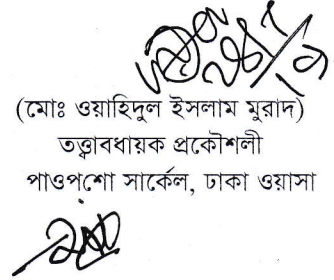 (মোঃ ওয়াহিদুল ইসলাম মুরাদ)
তত্ত্বাবধায়ক প্রকৌশলী
পাওপশো সার্কেল, ঢাকা ওয়াসা